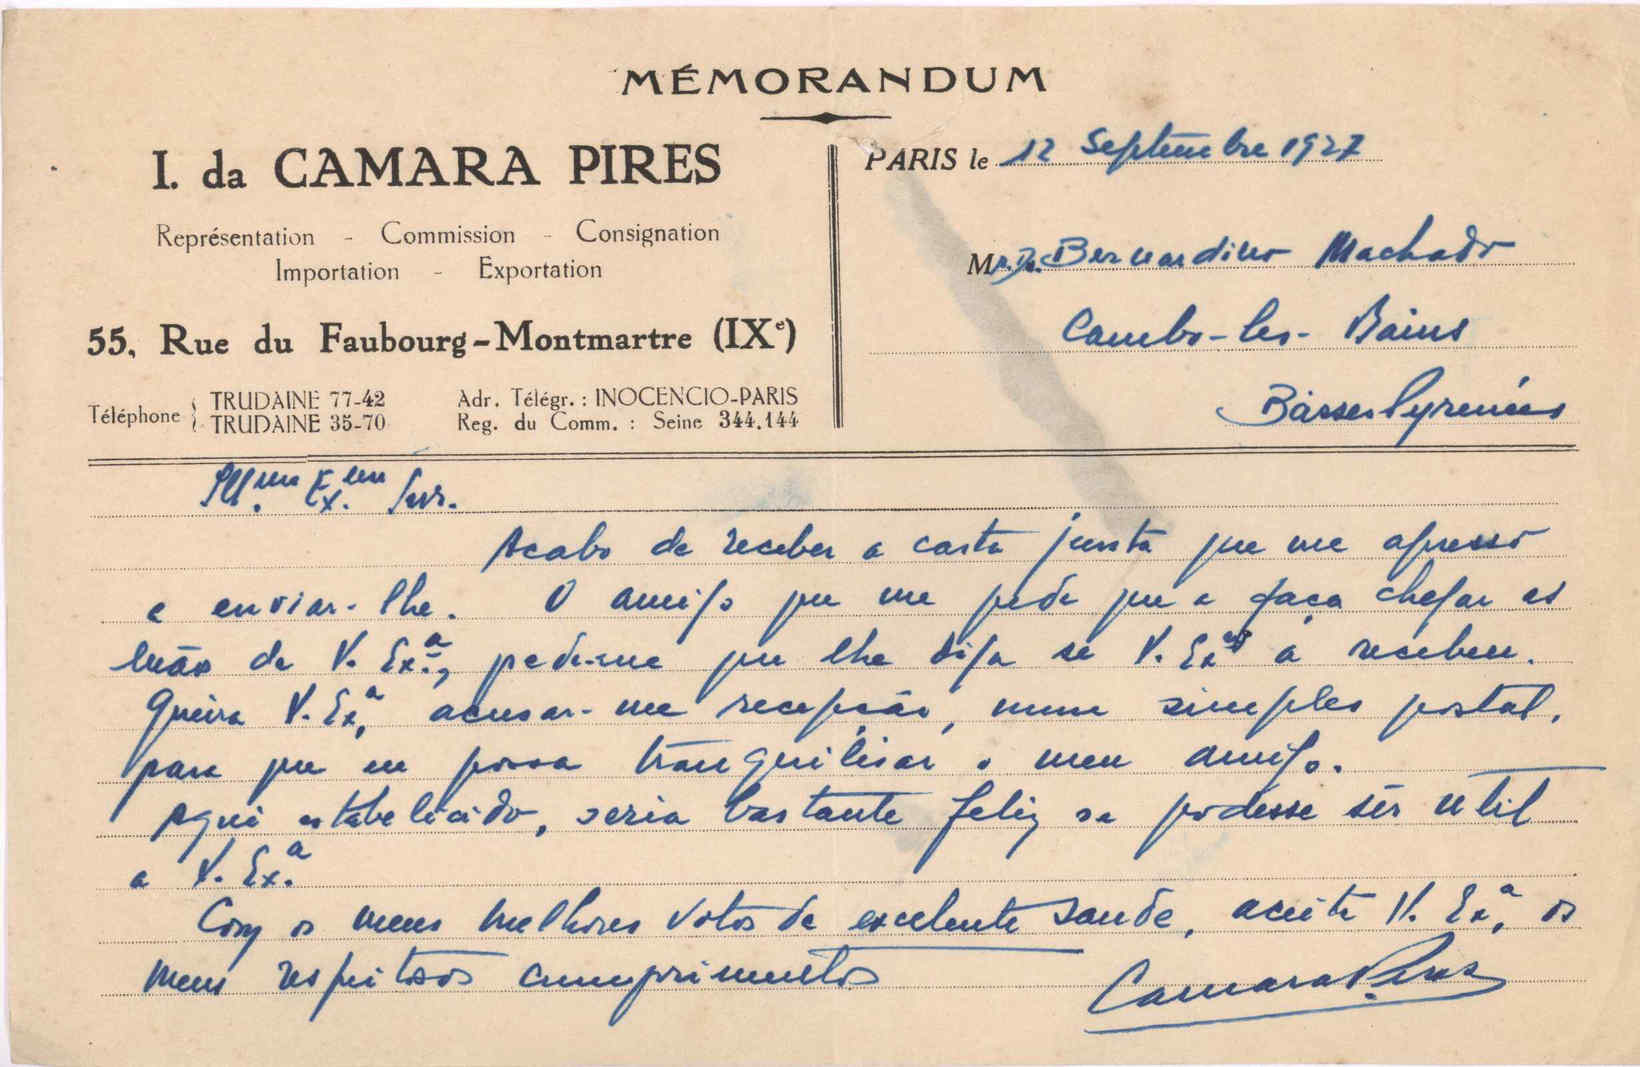 MÉMORANDUM
I. da CAMARA PIRES
Représentation - Commission - Consignation
Importation - Exportation
55, Rue du Faubourg-Montmartre (IXe)
Téléphone { TRUDAINE 77-42
TRUDAINE 35-70
Adr. Télégr. : INOCENCIO-PARIS
Reg. du Comm. : Seine 344.144
PARIS le 12 Septembre 1927
Mr. Dr. Bernardino Machado
Cambo-les-Bains
Basses Pyrenées
Ill.mo Ex.mo Snr.
Acabo de receber a carta junta que me apresso
a enviar-lhe. O amigo que me pede que a faça chegar ás
mãos de V. Ex.ª, pede-me que lhe diga se V. Ex.ª a recebeu.
Queira V. Ex.ª, acusar-me recepção, num simples postal,
para que eu possa tranquilisar o meu amigo.
Aqui estabelicido, seria bastante feliz se podesse sêr util
a V. Ex.ª
Com os meus melhores votos de excelente saude, aceite V. Ex.ª, os
meus respeitosos cumprimentos
Camara Pires